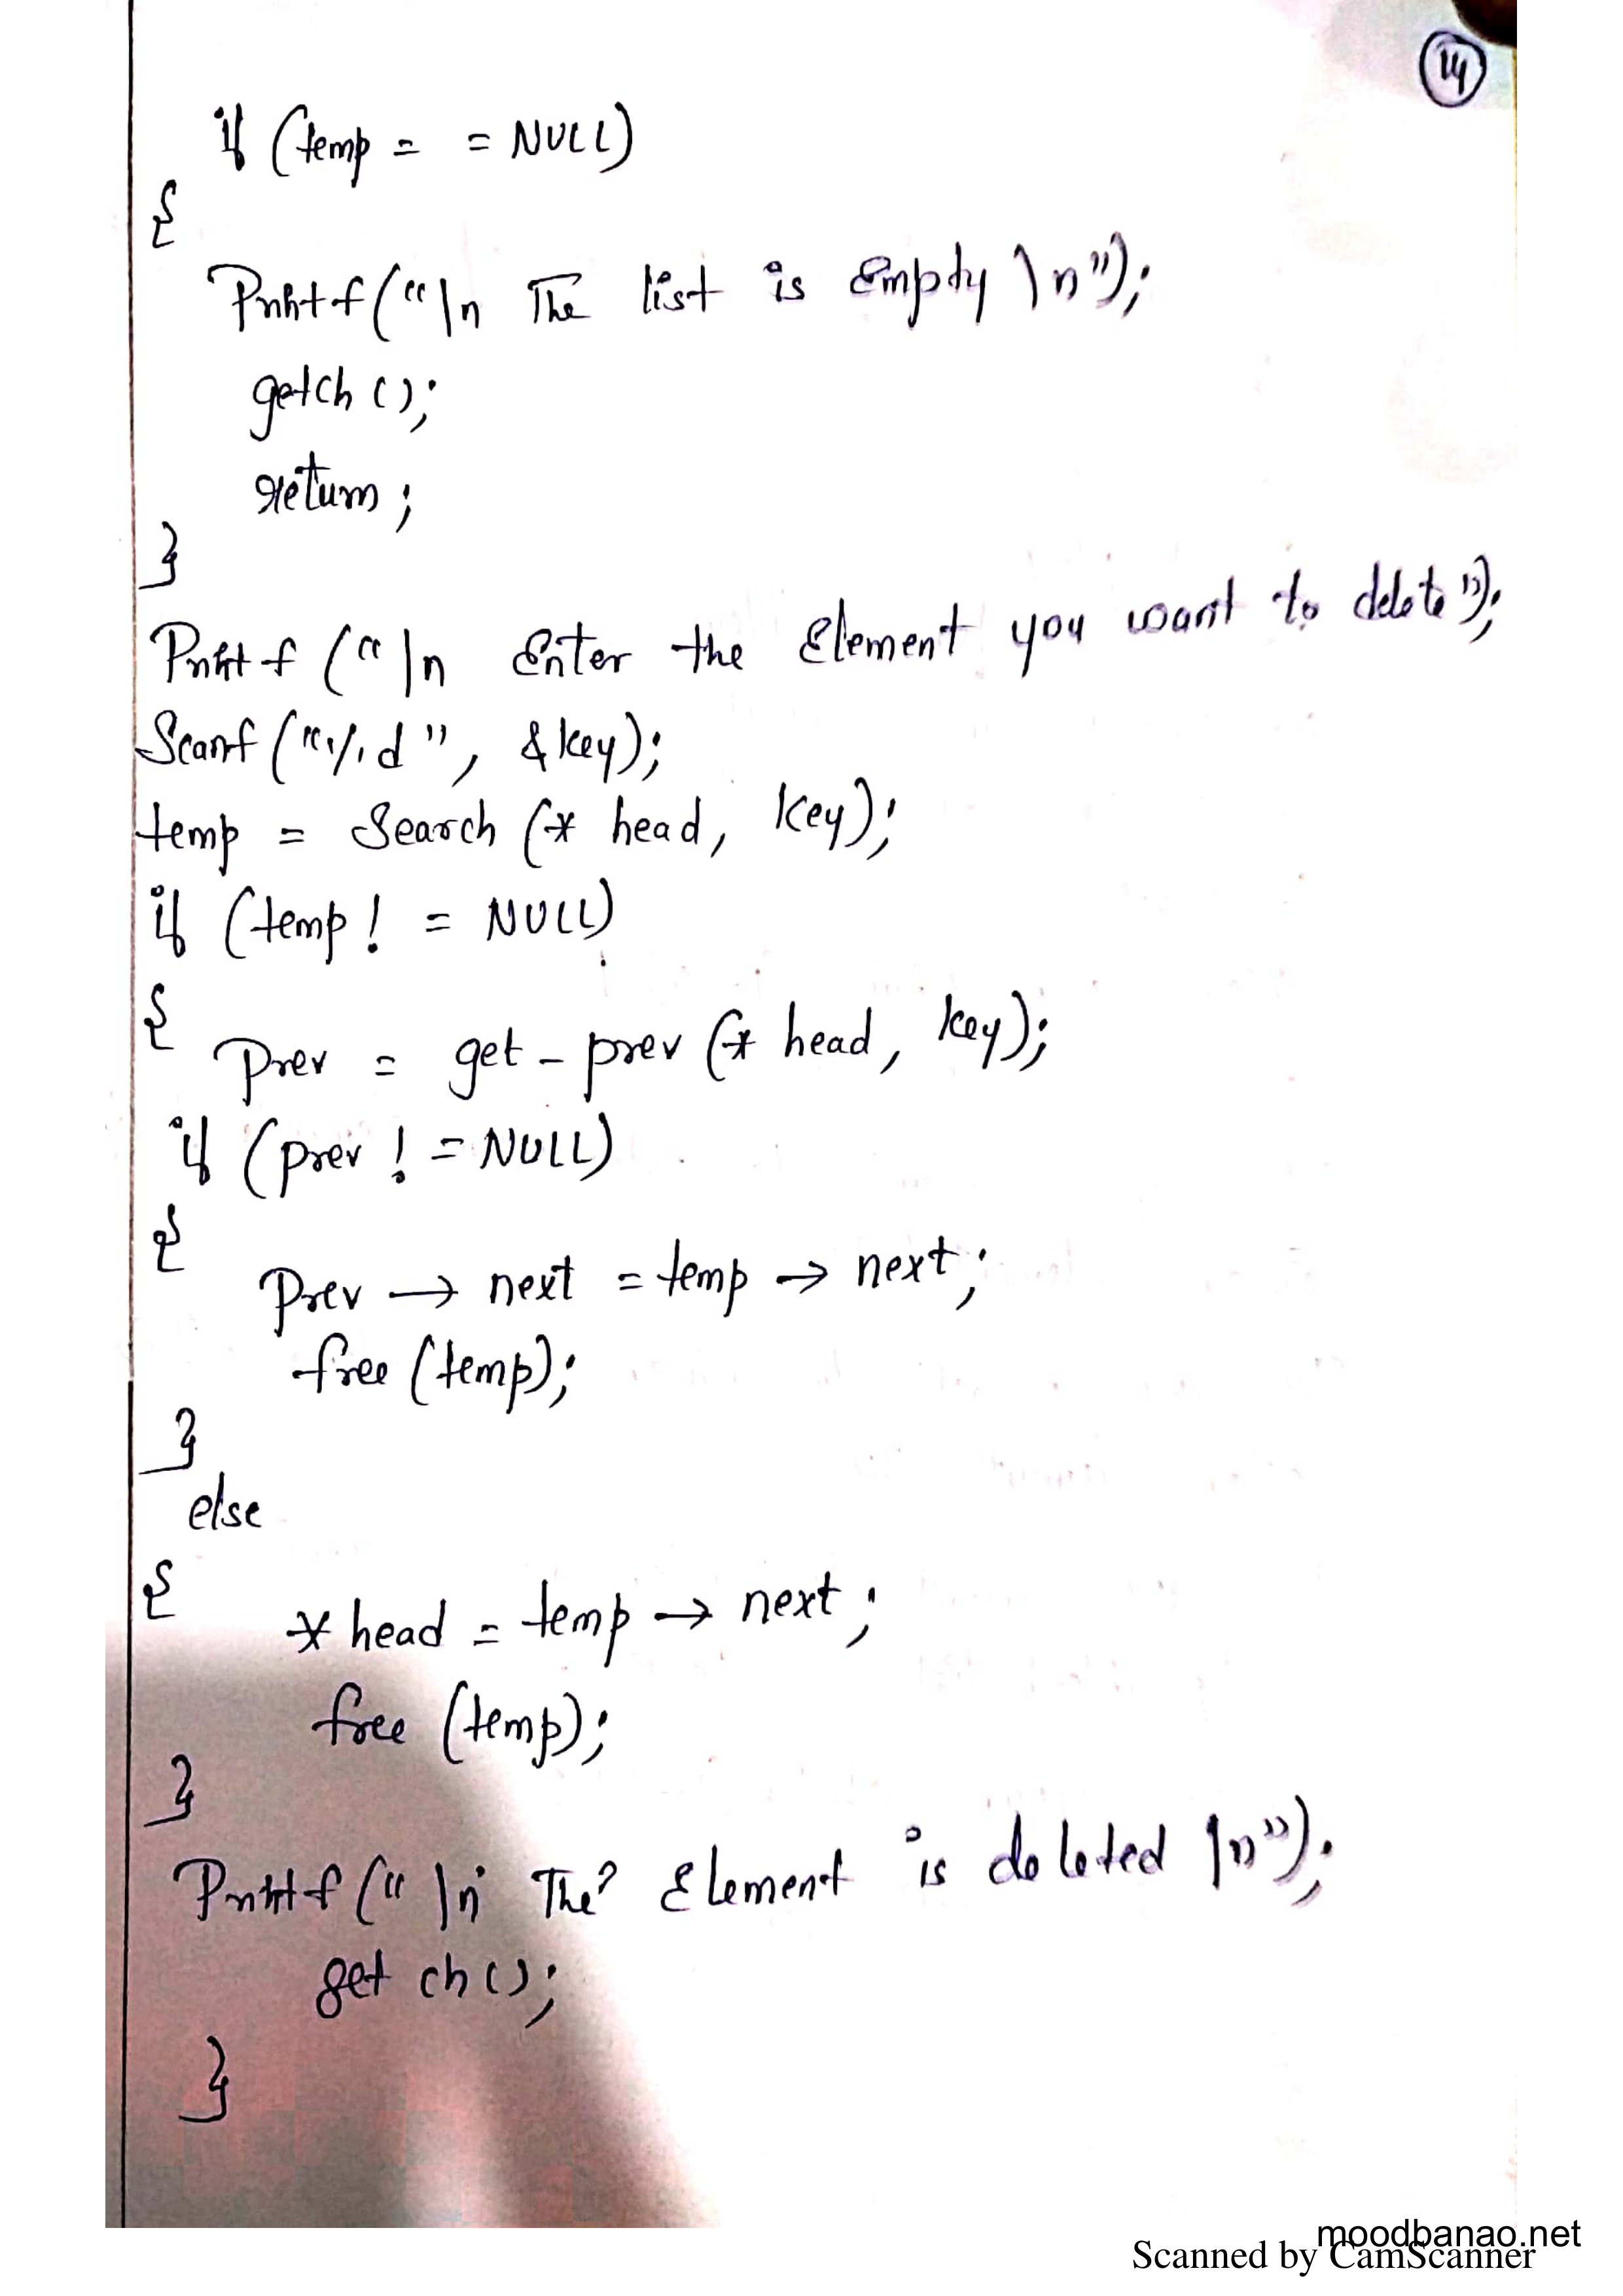 14
if (temp = = NULL)
{
Printf("\n The list is Empty \n");
getch ();
return ;
}
Printf ("\n Enter the Element you want to delete");
Scanf ("%d", &key);
temp = Search (* head, key);
if (temp! = NULL)
{
Prev = get - prev (* head, key);
if (prev ! = NULL)
{
Prev → next = temp → next;
free (temp);
}
else
{
* head = temp → next ;
free (temp);
}
Printf (" \n The Element is deleted \n");
get ch ();
}
moodbanao.net
Scanned by CamScanner